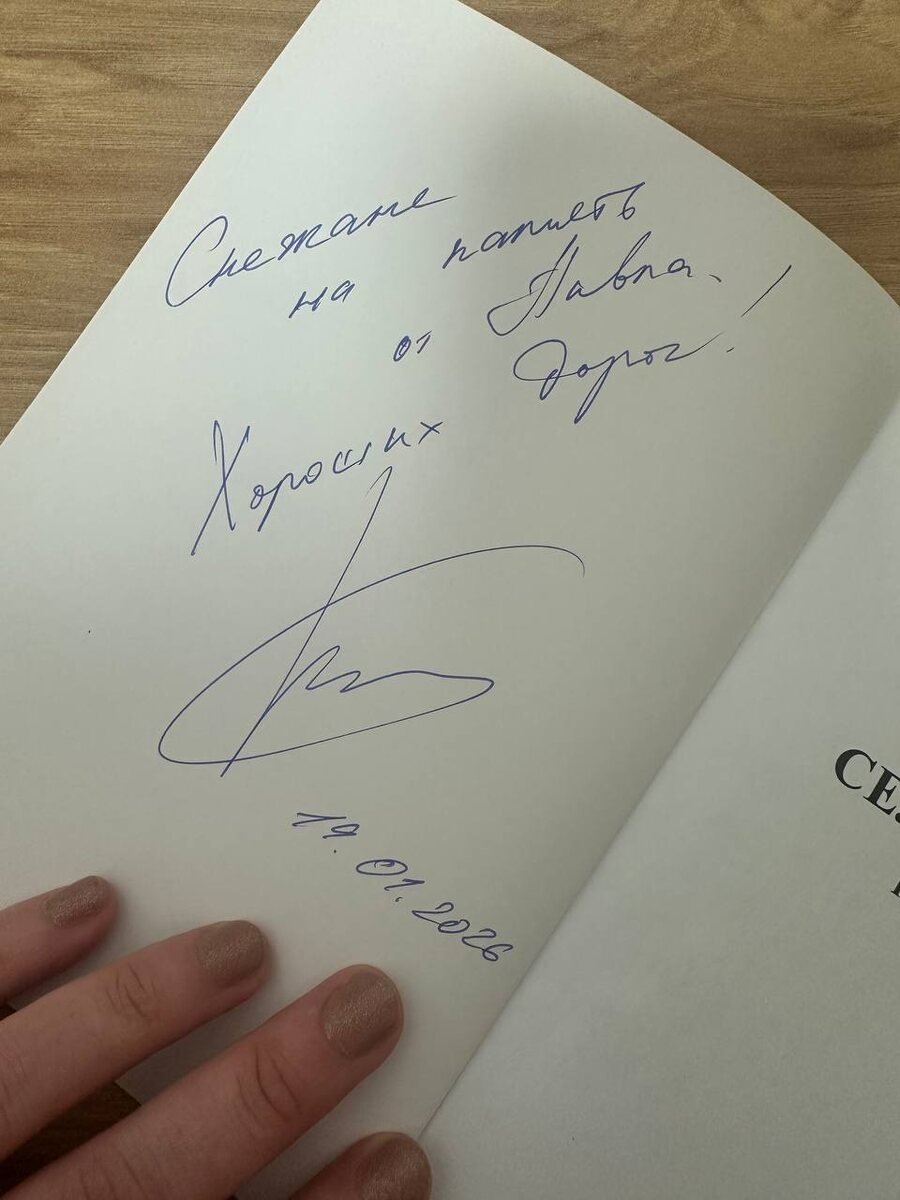 Снежане
на память
от Павла.
Хороших дорог!
19.01.2026
СЕ